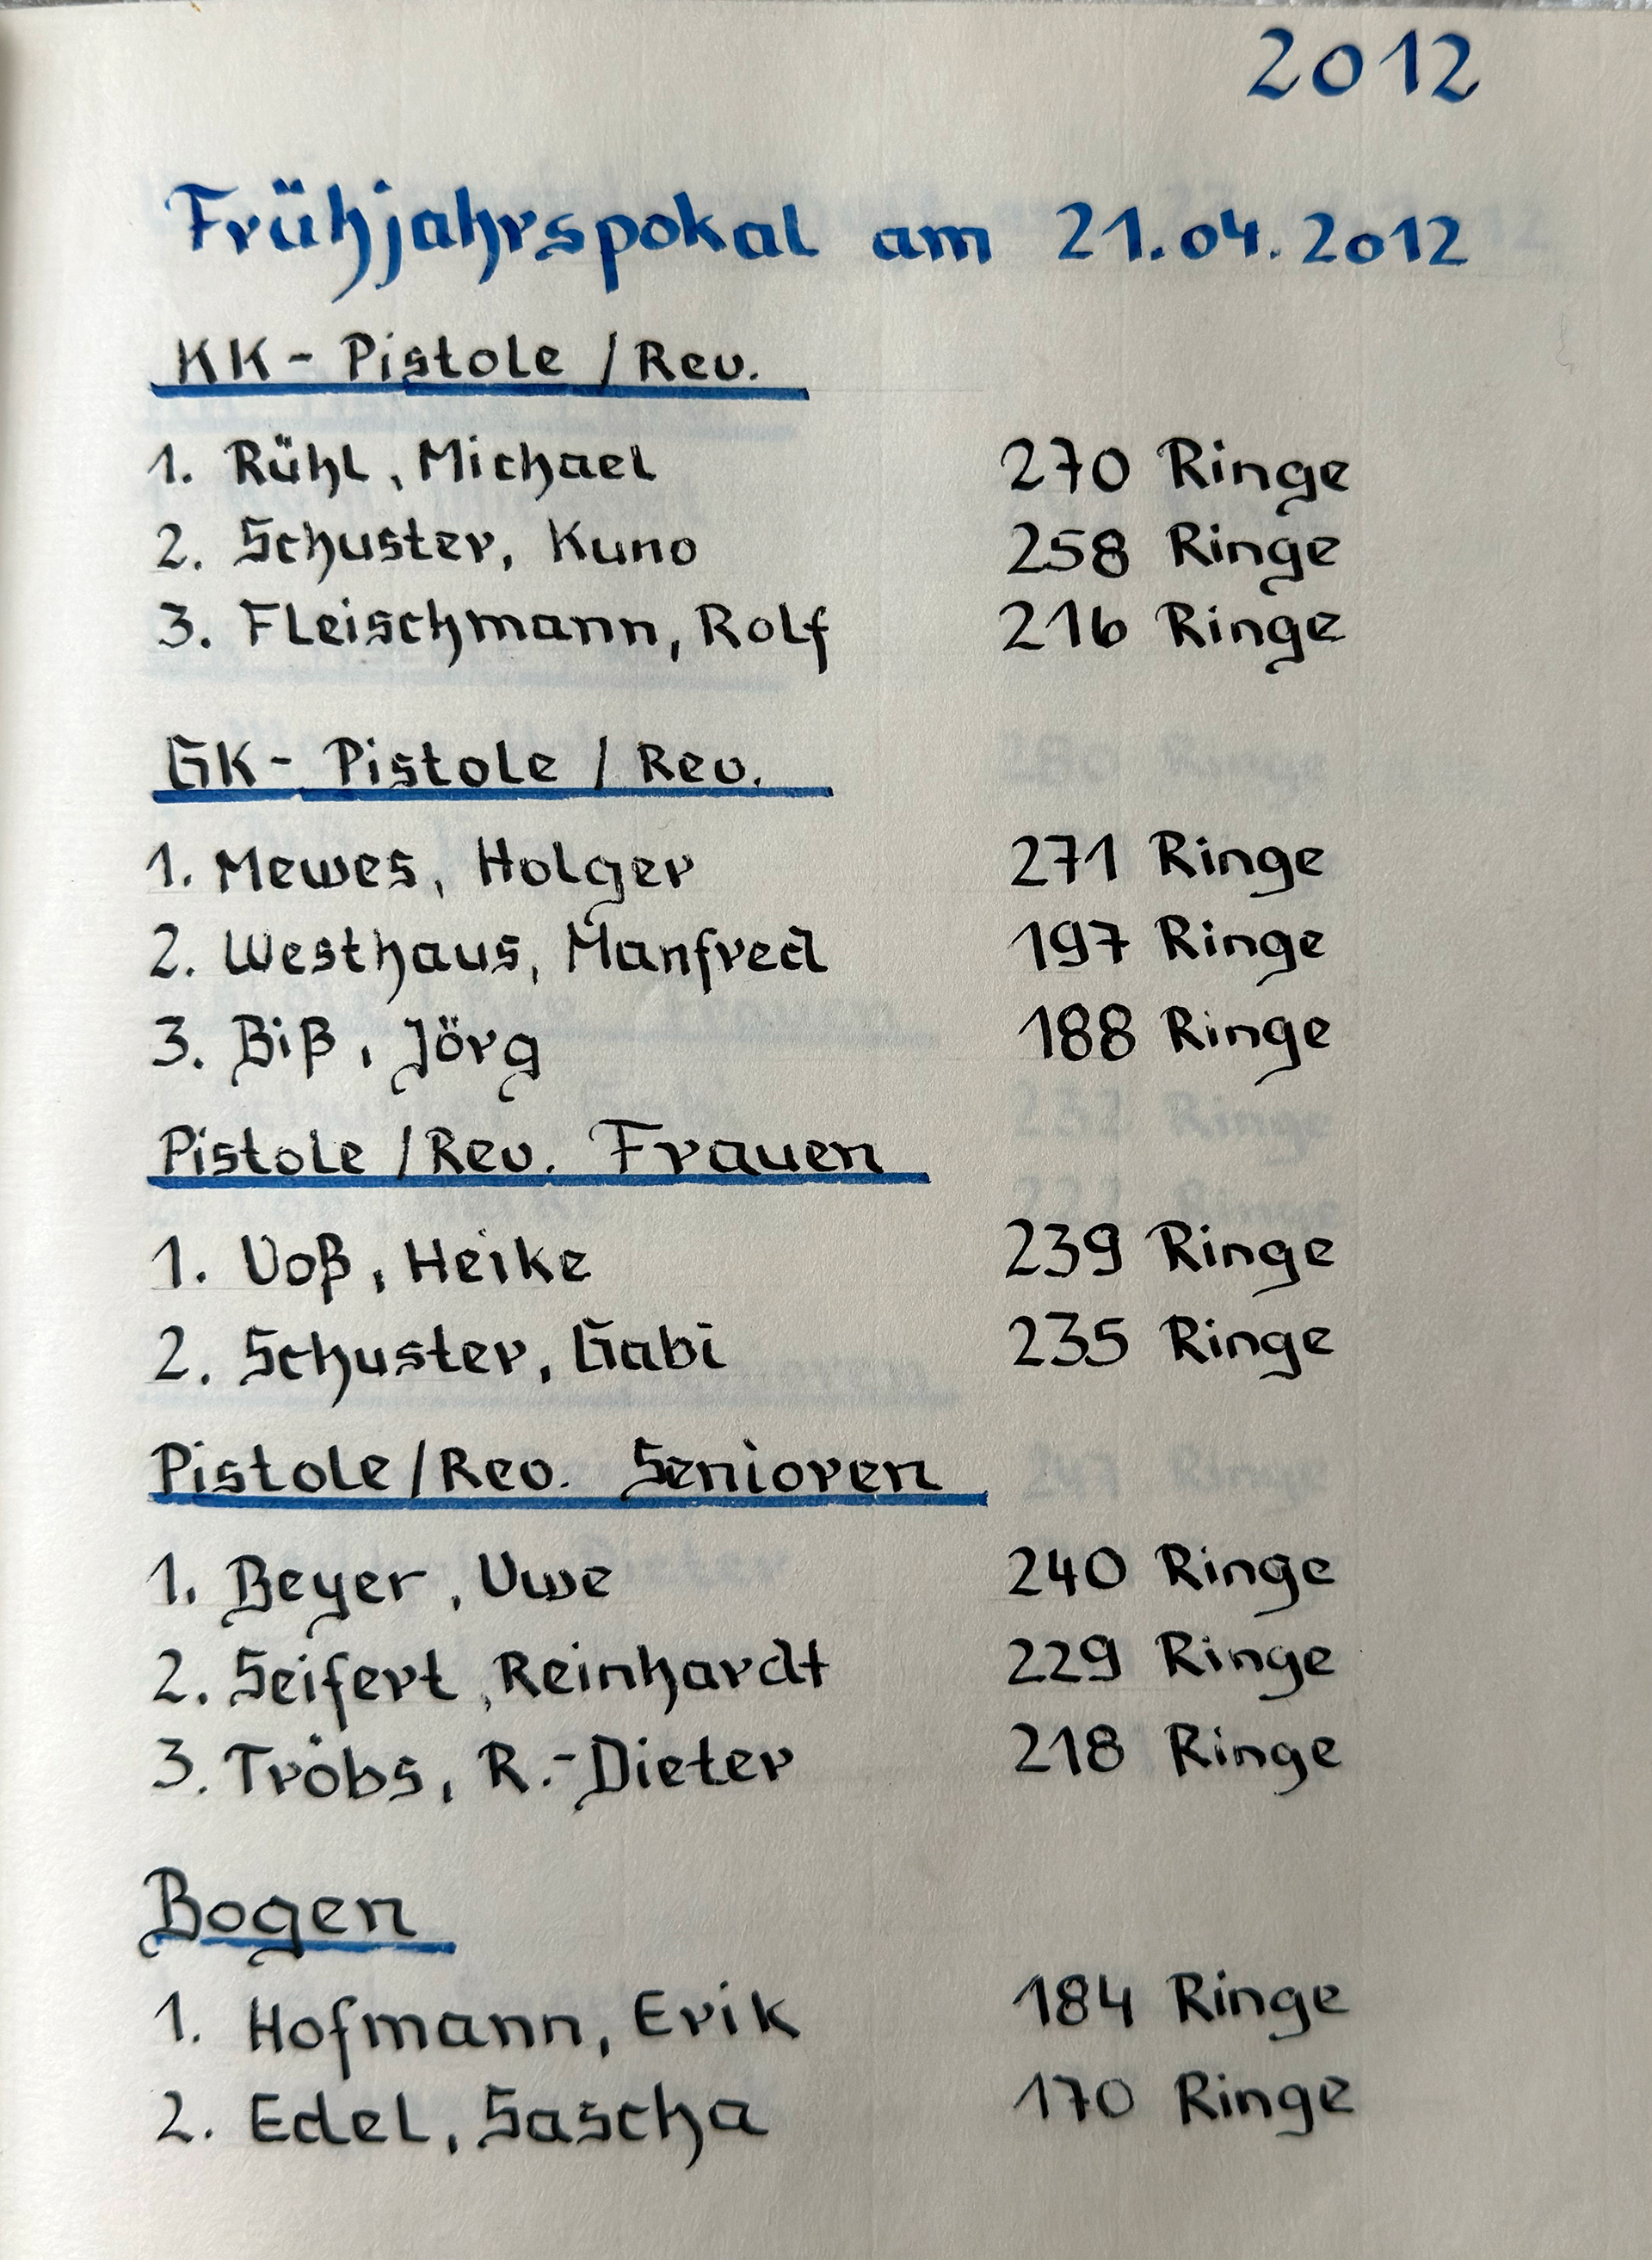 2012
Frühjahrspokal am 21.04.2012
KK- Pistole / Rev.
1. Rühl, Michael 270 Ringe
2. Schuster, Kuno 258 Ringe
3. Fleischmann, Rolf 216 Ringe
GK- Pistole / Rev.
1. Mewes, Holger 271 Ringe
2. Westhaus, Manfred 197 Ringe
3. Biß, Jörg 188 Ringe
Pistole / Rev. Frauen
1. Voß, Heike 239 Ringe
2. Schuster, Gabi 235 Ringe
Pistole / Rev. Senioren
1. Beyer, Uwe 240 Ringe
2. Seifert, Reinhardt 229 Ringe
3. Tröbs, R.-Dieter 218 Ringe
Bogen
1. Hofmann, Erik 184 Ringe
2. Edel, Sascha 170 Ringe